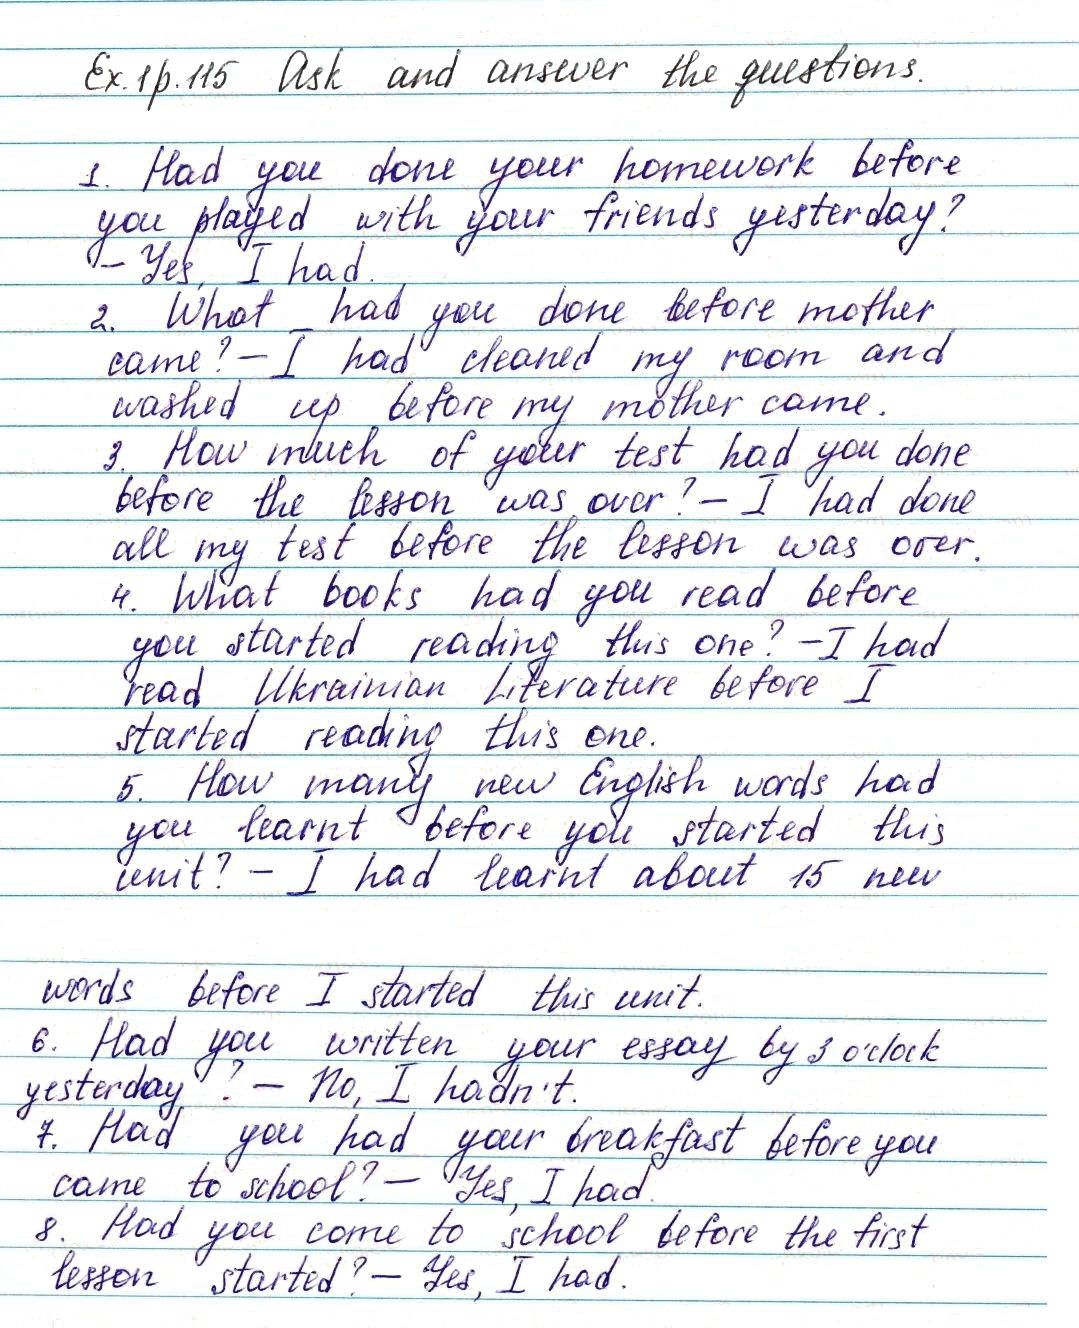 Ex. 1 p. 115 Ask and answer the questions.
1. Had you done your homework before
you played with your friends yesterday?
– Yes, I had.
2. What had you done before mother
came? – I had cleaned my room and
washed up before my mother came.
3. How much of your test had you done
before the lesson was over? – I had done
all my test before the lesson was over.
4. What books had you read before
you started reading this one? – I had
read Ukrainian Literature before I
started reading this one.
5. How many new English words had
you learnt before you started this
unit? – I had learnt about 15 new
words before I started this unit.
6. Had you written your essay by 3 o'clock
yesterday? – No, I hadn't.
7. Had you had your breakfast before you
came to school? – Yes, I had.
8. Had you come to school before the first
lesson started? – Yes, I had.